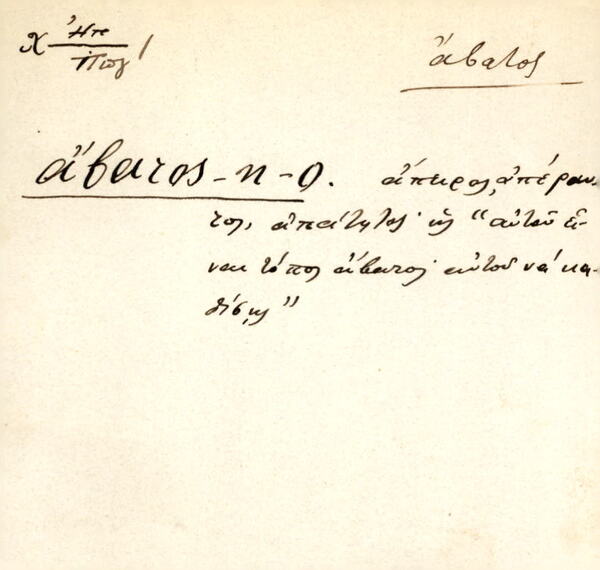 χ Ἠπ /
Πωγ
ἄβατος
ἄβατος -η -ο. ἄπειρος, ἀπέραν-
τος, ἀπάτητος· "αὐτοῦ εἶ-
ναι τόπος ἄβατος· αὐτοῦ νά κα-
θίσῃς"